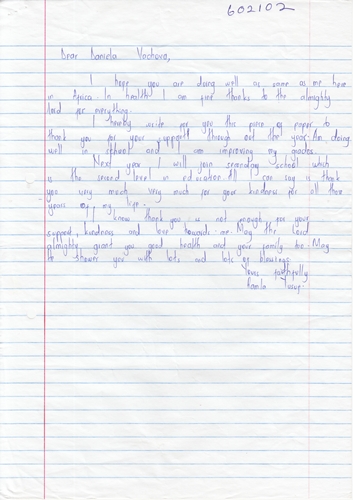 602102
Dear Daniela Vachova,
I hope you are doing well as same as me here
in Africa. In health I am fine thanks to the almighty
lord for everything.
I hereby write for you this piece of paper to
thank you for your support through out the year. Am doing
well in school and I am improving my grades.
Next year I will join secondary school which
is the second level in education. All I can say is thank
you very much very much for your kindness for all those
years of my life.
I know thank you is not enough for your
support, kindness and love towards me. May the Lord
almighty grant you good health and your family too. May
He shower you with lots and lots of blessings.
Yours faithfully